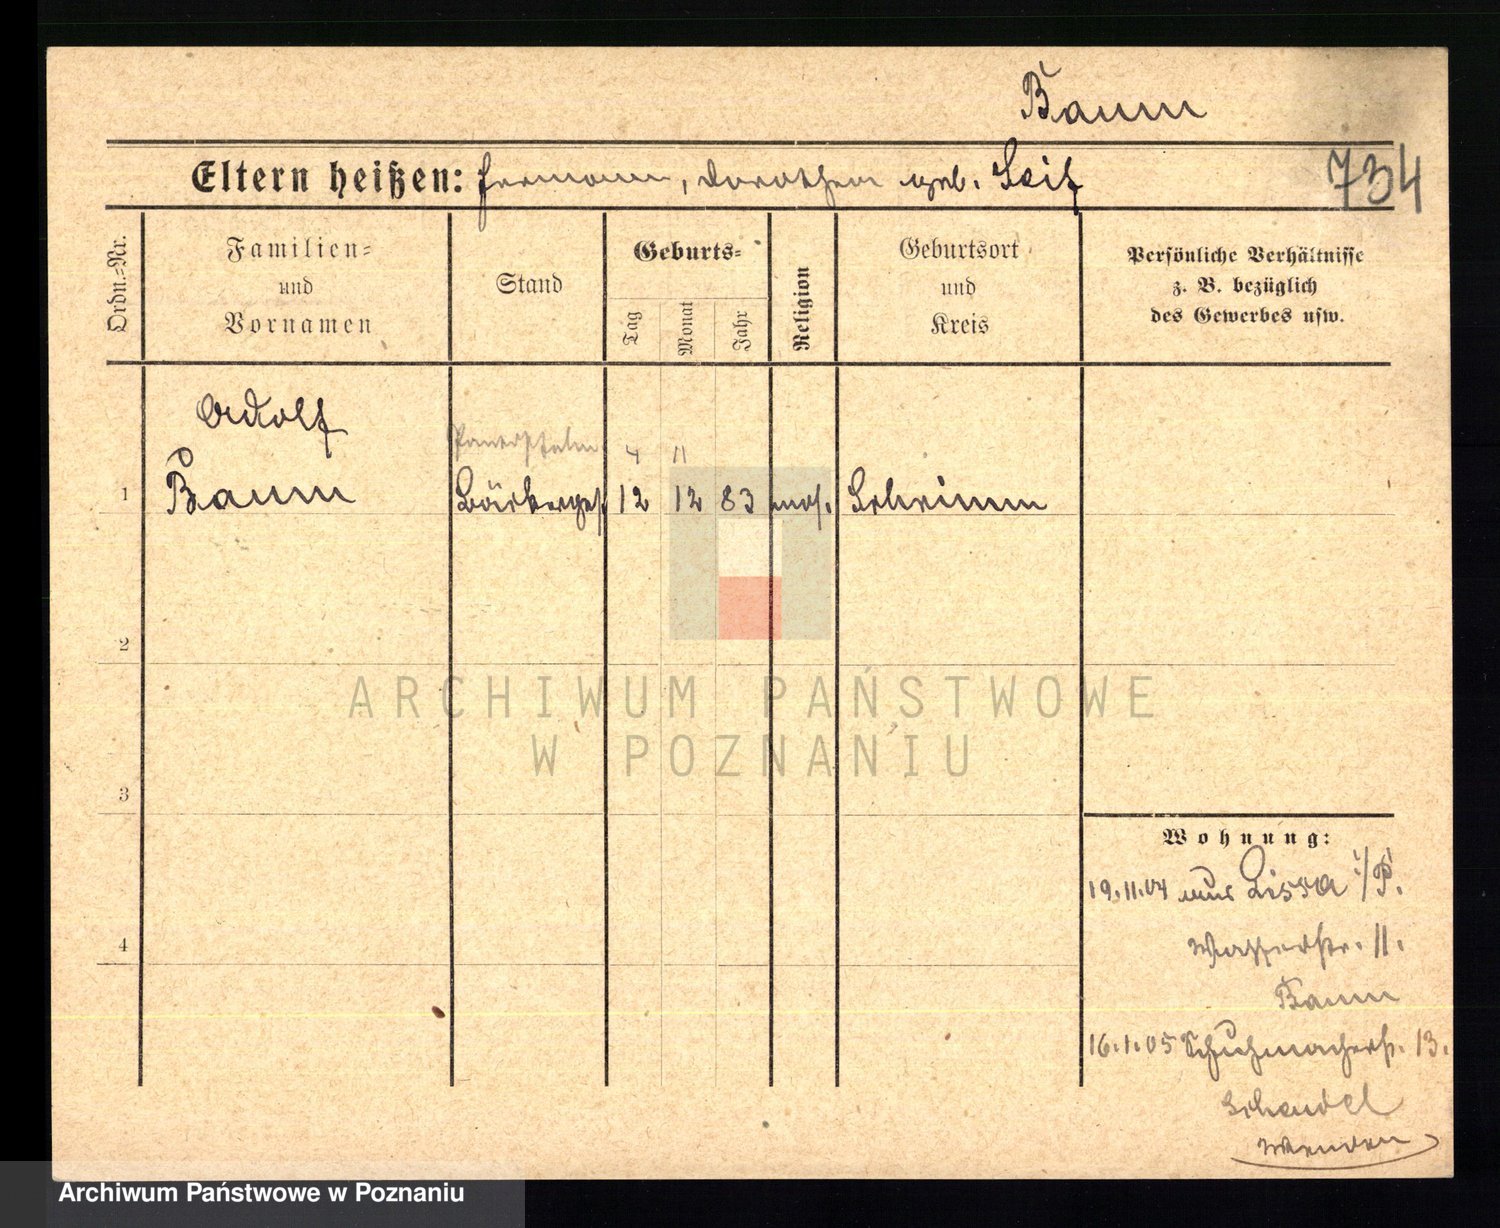 Baum
Eltern heißen: Hermann, Dorothea geb. Seif
734
Ordn.-Nr.
Familien-
und
Vornamen
Stand
Geburts-
Tag
Monat
Jahr
Religion
Geburtsort
und
Kreis
Persönliche Verhältnisse
z. B. bezüglich
des Gewerbes usw.
Adolf
4 11
1 Baum 12 12 83 mos. Schrimm
2
ARCHIWUM PAŃSTWOWE
W POZNANIU
3
4
Wohnung:
19.11.04 aus Lissa i/P.
Wasserstr. 11.
Baum
16.1.05 Schuhmacherstr. 13.
Schendel
Wenden
Archiwum Państwowe w Poznaniu